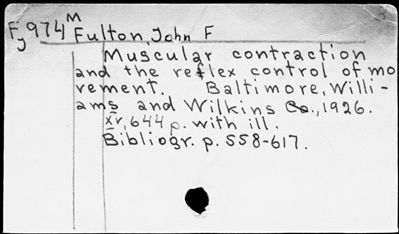 Fj974M Fulton, John F
Muscular contraction
and the reflex control of mo
vement. Baltimore, Willi-
ams and Wilkins Co., 1926.
xv, 644 p. with ill.
Bibliogr. p. 558-617.